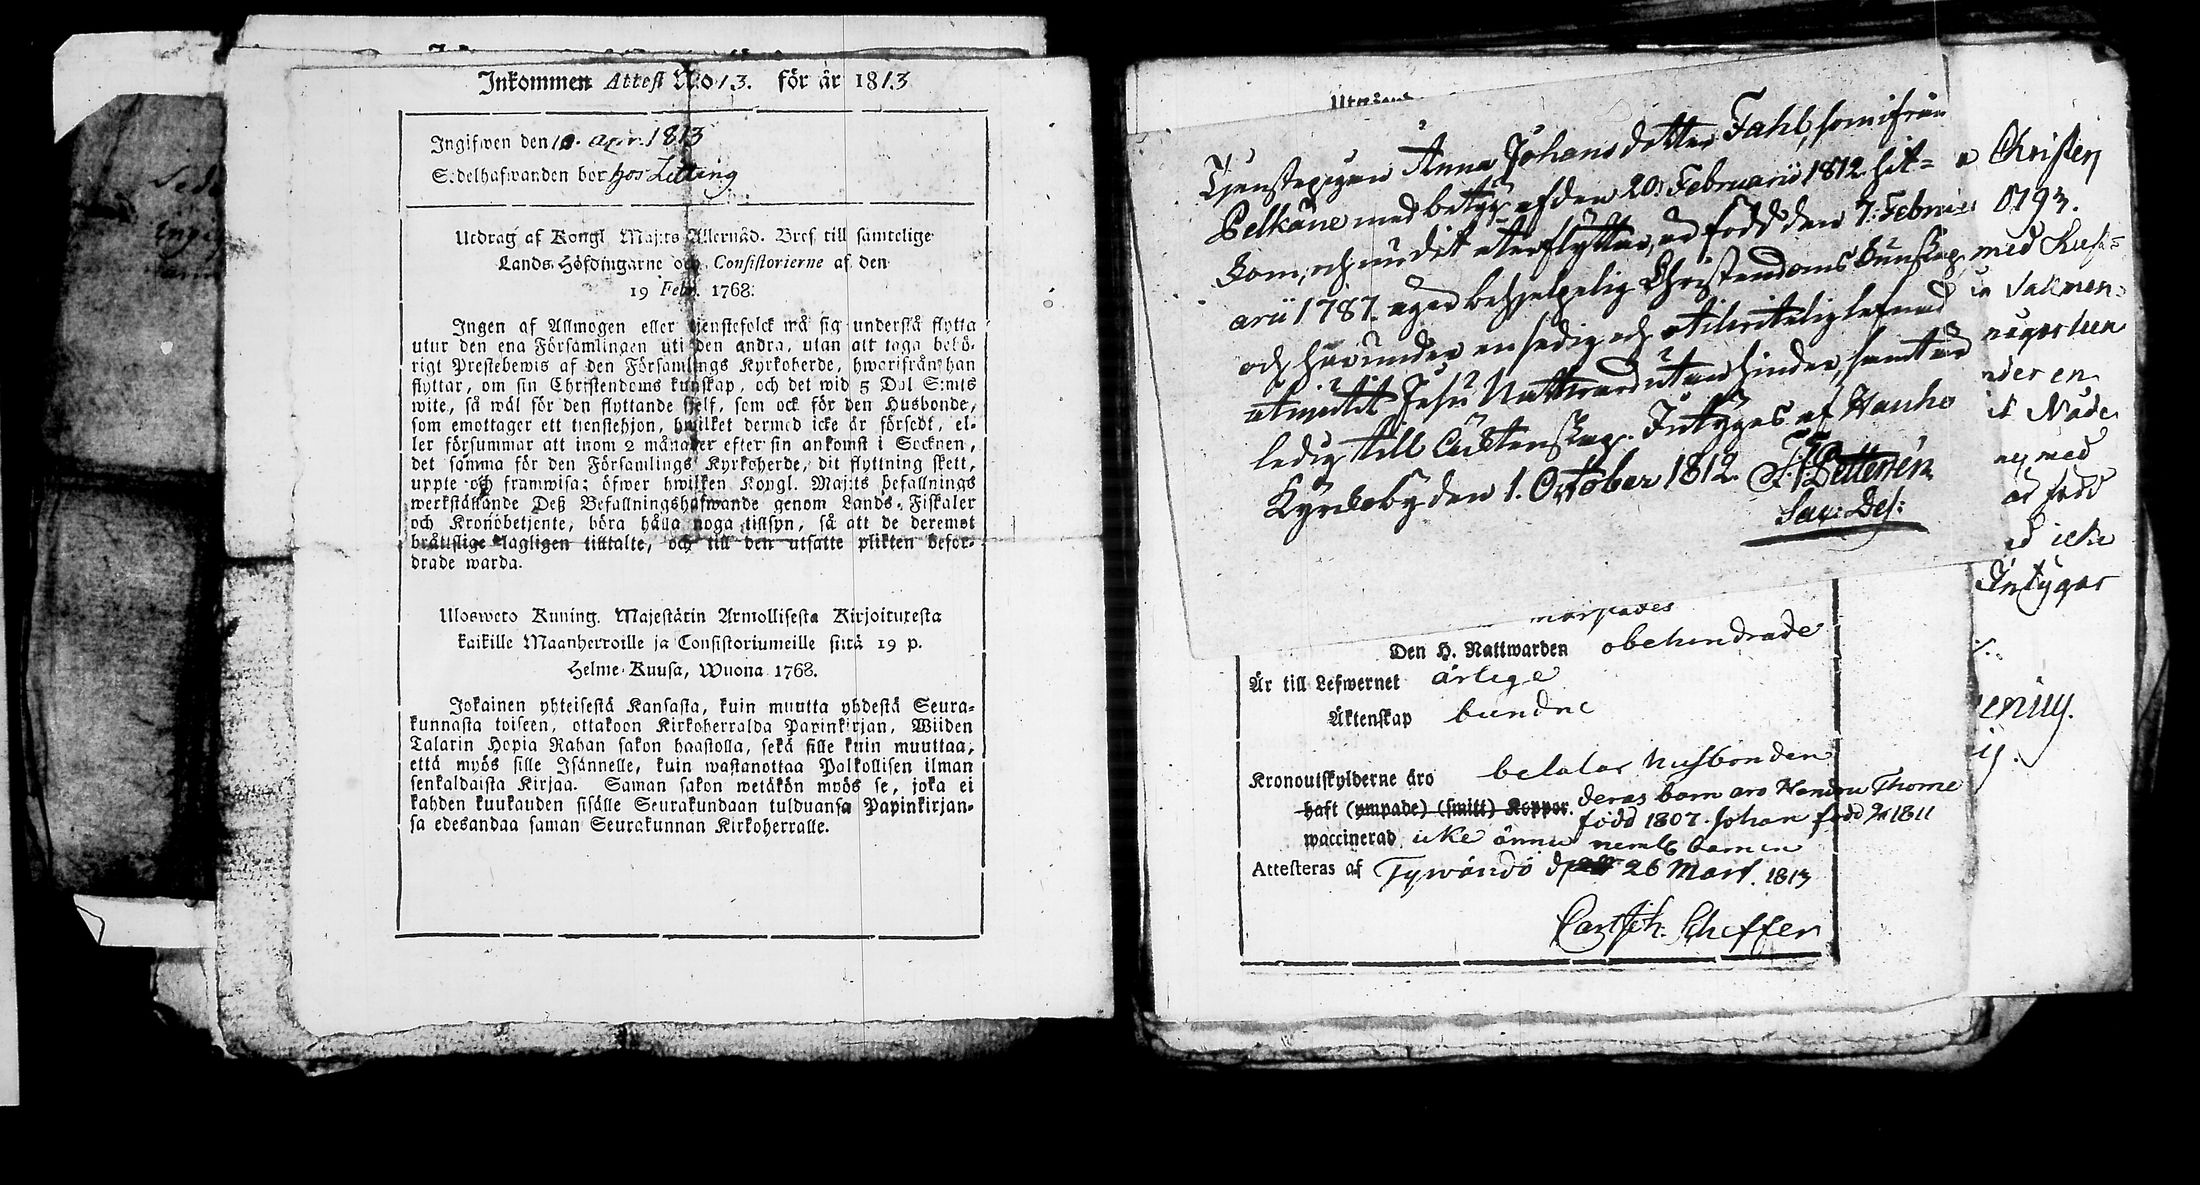 Inkommen Attest No 13. för år 1813
Ingifwen den 10. Apr. 1813
Sedelhafwanden bor hos Letting
Utdrag af Kongl. Maj:ts Allernåd. Bref till samtelige
Lands-Höfdingarne och Consistorierne af den
19 Febr. 1768.
Ingen af Allmogen eller tjenstefolck må sig understå flytta
utur den ena Församlingen uti den andra, utan att taga behö-
rigt Prestebewis af den Församlings Kyrkoherde, hwarifrån han
flyttar, om sin Christendoms kunskap, och det wid 5 Dal S:mts
wite, så wäl för den flyttande sjelf, som ock för den Husbonde,
som emottager ett tjenstehjon, hwilket dermed icke är försedt, el-
ler försummar att inom 2 månader efter sin ankomst i Socknen,
det samma för den Församlings Kyrkoherde, dit flyttning skett,
uppte och framwisa; öfwer hwilken Kongl. Maj:ts befallnings
werkställande Deß Befallningshafwande genom Lands-Fiskaler
och Kronobetjente, böra hålla noga tillsyn, så att de deremot
bråttslige lagligen tilltalte, och till den utsatte plikten befor-
drade warda.
Uloswето Kuning. Majestätin Armollisesta Kirjoituxesta
kaikille Maanherroille ja Consistoriumeille siitä 19 p.
Helme-Kuusa, Wuona 1768.
Jokainen yhteisestä Kansasta, kuin muutta yhdestä Seura-
kunnasta toiseen, ottakoon Kirkoherralda Papinkirjan, Wiiden
Talarin Hopia Rahan sakon haastolla, sekä sille kuin muuttaa,
että myös sille Isännelle, kuin wastanottaa Palkollisen ilman
senkaldaista Kirjaa. Saman sakon wetäkön myös se, joka ei
kahden kuukauden sisälle Seurakundaan tulduansa Papinkirjan-
sa edesandaa saman Seurakunnan Kirkoherralle.
Tjenstepigan Anna Johans dotter Fahl, som ifrån
Pelkäne med betyg af den 20. Februarii 1812 hit-
kom, och nu dit återflyttar, är född den 7. Febru-
arii 1787. äger behjelpelig Christendoms kunskap
och har under en sedig och otadelig lefnad
utnjutit Jesu Nattvard utan hinder, samt är
ledig till Ächtenskap. Intygas af Hauho
Kyrckoby den 1. October 1812.
Christen
0793.
med
någorlun
der en
Nåde
med
född
icke
Intygar
Den H. Nattwarden obehindrade
Är till Lefwernet ärlige
Äktenskap bundne
Kronoutskylderne äro betalar husbonden
haft (ympade) (smitt) Koppor. deras barn äro Thome
född 1807. Johan född 1811
waccinerad icke ännu barnen
Attesteras af Tywändö d. 26 Mart. 1813
Scheffer